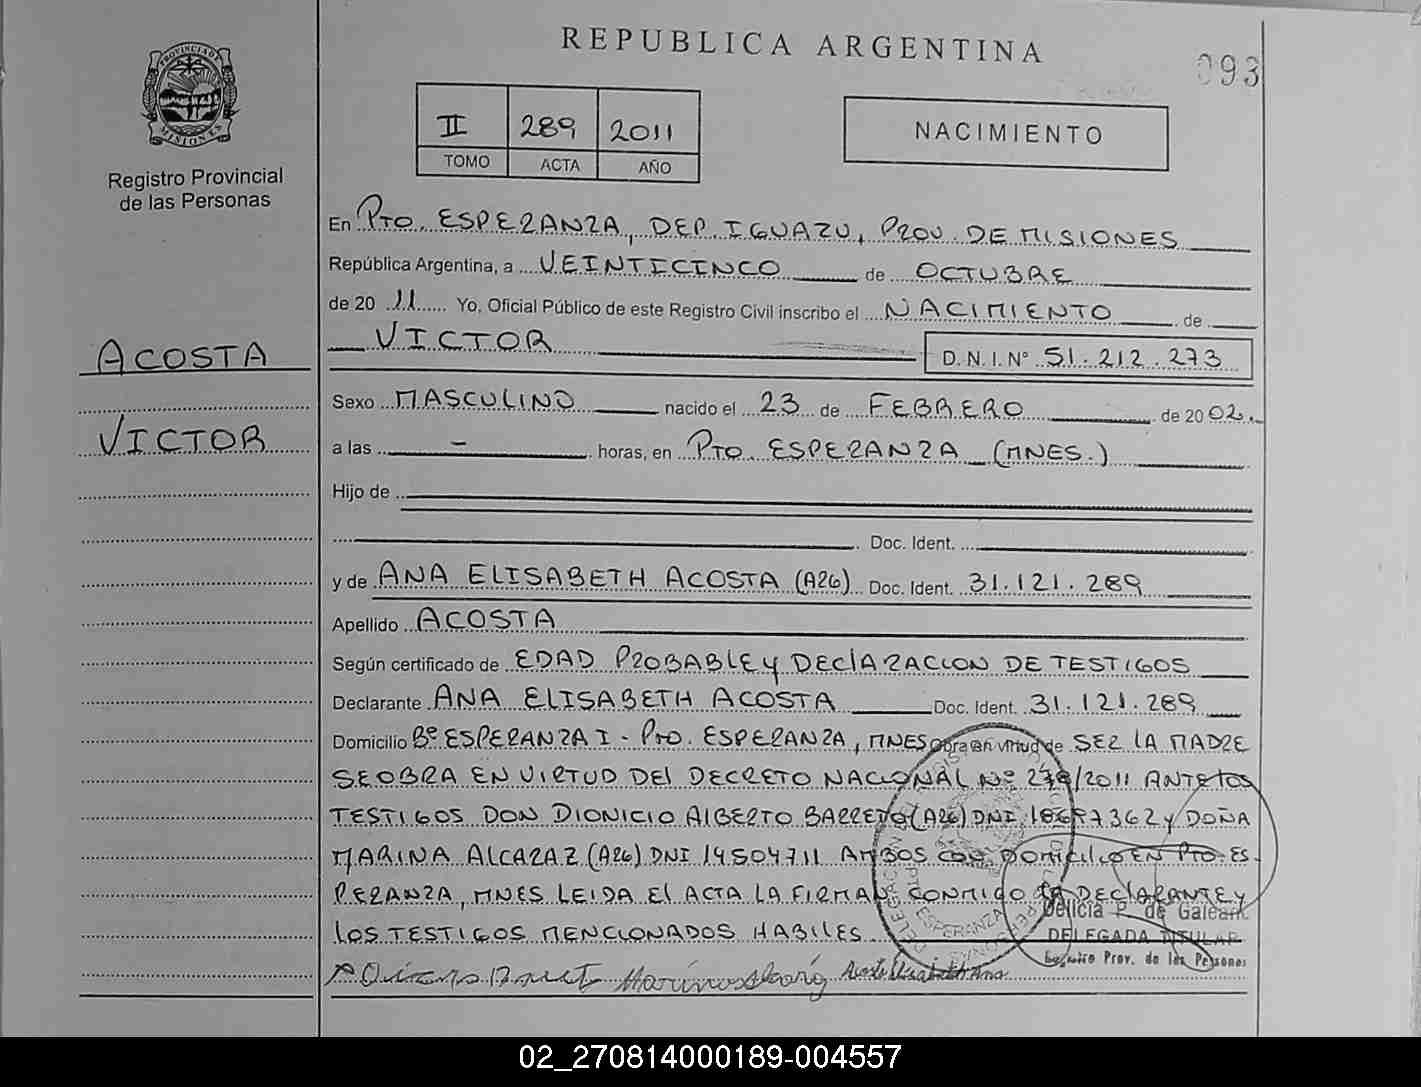 REPUBLICA ARGENTINA
093
PROVINCIA DE MISIONES
Registro Provincial
de las Personas
II 289 2011
TOMO ACTA AÑO
NACIMIENTO
En PTO. ESPERANZA, DEP. IGUAZU, PROV. DE MISIONES
República Argentina, a VEINTICINCO de OCTUBRE
de 20 11 Yo, Oficial Público de este Registro Civil inscribo el NACIMIENTO de
VICTOR D.N.I. N° 51.212.273
ACOSTA
VICTOR
Sexo MASCULINO nacido el 23 de FEBRERO de 2002.
a las - horas, en PTO. ESPERANZA (MNES.)
Hijo de
Doc. Ident.
y de ANA ELISABETH ACOSTA (A26) Doc. Ident. 31.121.289
Apellido ACOSTA
Según certificado de EDAD PROBABLE y DECLARACION DE TESTIGOS
Declarante ANA ELISABETH ACOSTA Doc. Ident. 31.121.289
Domicilio B° ESPERANZA I - PTO. ESPERANZA, MNES Obra en virtud de SER LA MADRE
SE OBRA EN VIRTUD DEL DECRETO NACIONAL N° 278/2011 ANTE LOS
TESTIGOS DON DIONICIO ALBERTO BARRETO (A26) DNI 18697362 y DOÑA
MARINA ALCARAZ (A26) DNI 14504711 AMBOS CON DOMICILIO EN PTO. ES-
PERANZA, MNES LEIDA EL ACTA LA FIRMAN CONMIGO LA DECLARANTE y
LOS TESTIGOS MENCIONADOS HABILES
Delicia P. de Galeano
DELEGADA TITULAR
Registro Prov. de las Personas
02_270814000189-004557